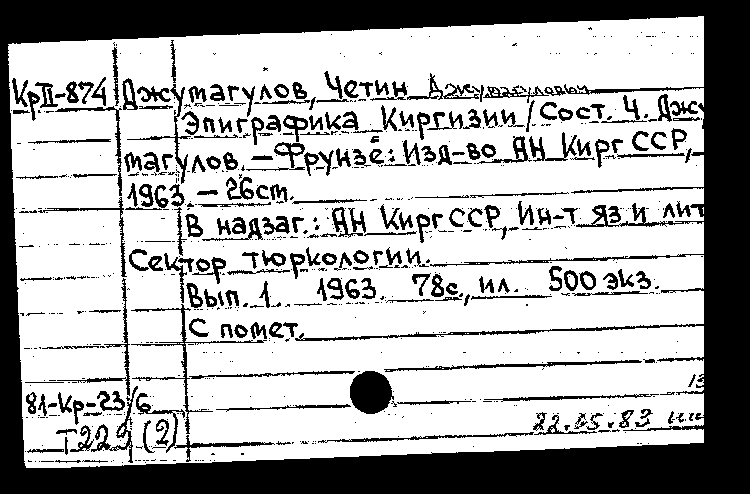 КрII-874 Джумагулов, Четин Джумагулович
Эпиграфика Киргизии / Сост. Ч. Джу
магулов. — Фрунзе: Изд-во АН Кирг ССР,
1963. — 26 ст.
В надзаг.: АН Кирг ССР, Ин-т яз и лит
Сектор тюркологии.
Вып. 1. 1963. 78с., ил. 500 экз.
С помет.
81-Кр-23/6
Т229 (2)
22.05.83